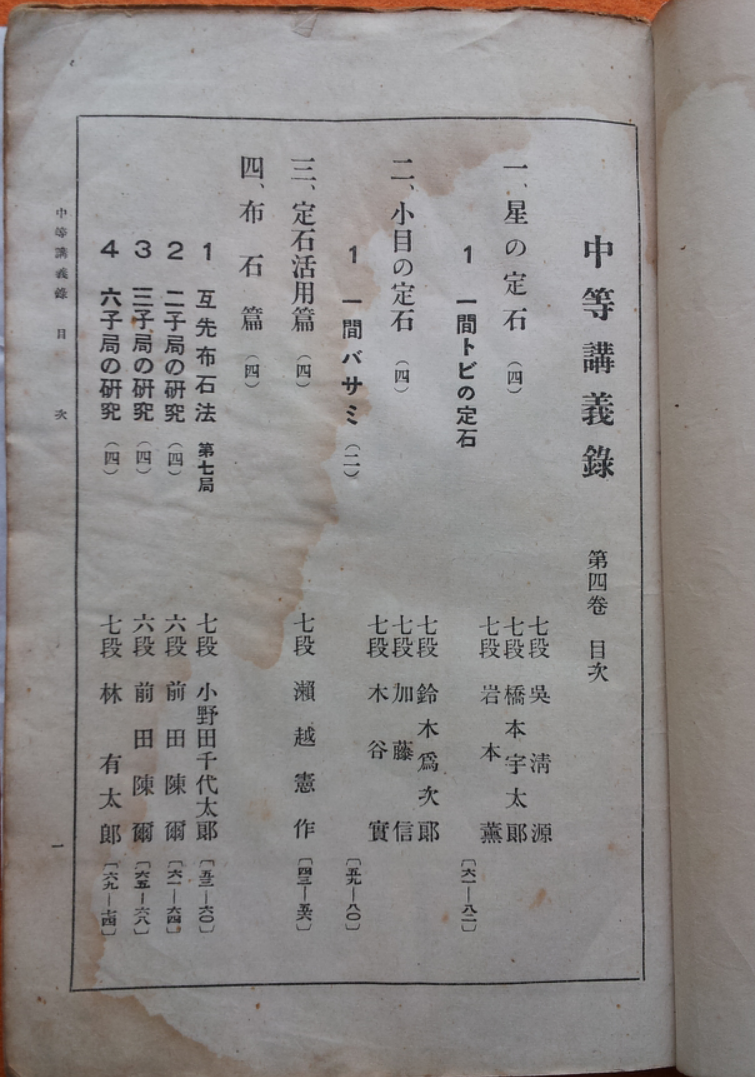 中等講義錄 第四卷 目次
一、星の定石（四）
七段 吳淸源
七段 橋本宇太郎
七段 岩本薫
1 一間トビの定石 〔六一―八二〕
二、小目の定石（四）
七段 鈴木爲次郎
七段 加藤信
七段 木谷實
1 一間バサミ（二） 〔五九―八〇〕
三、定石活用篇（四） 七段 瀨越憲作 〔四三―五六〕
四、布石篇（四）
1 互先布石法 第七局 七段 小野田千代太郎 〔五三―六〇〕
2 二子局の研究（四） 六段 前田陳爾 〔六一―六四〕
3 三子局の研究（四） 六段 前田陳爾 〔六五―六八〕
4 六子局の研究（四） 七段 林有太郎
中等講義錄 目次
一